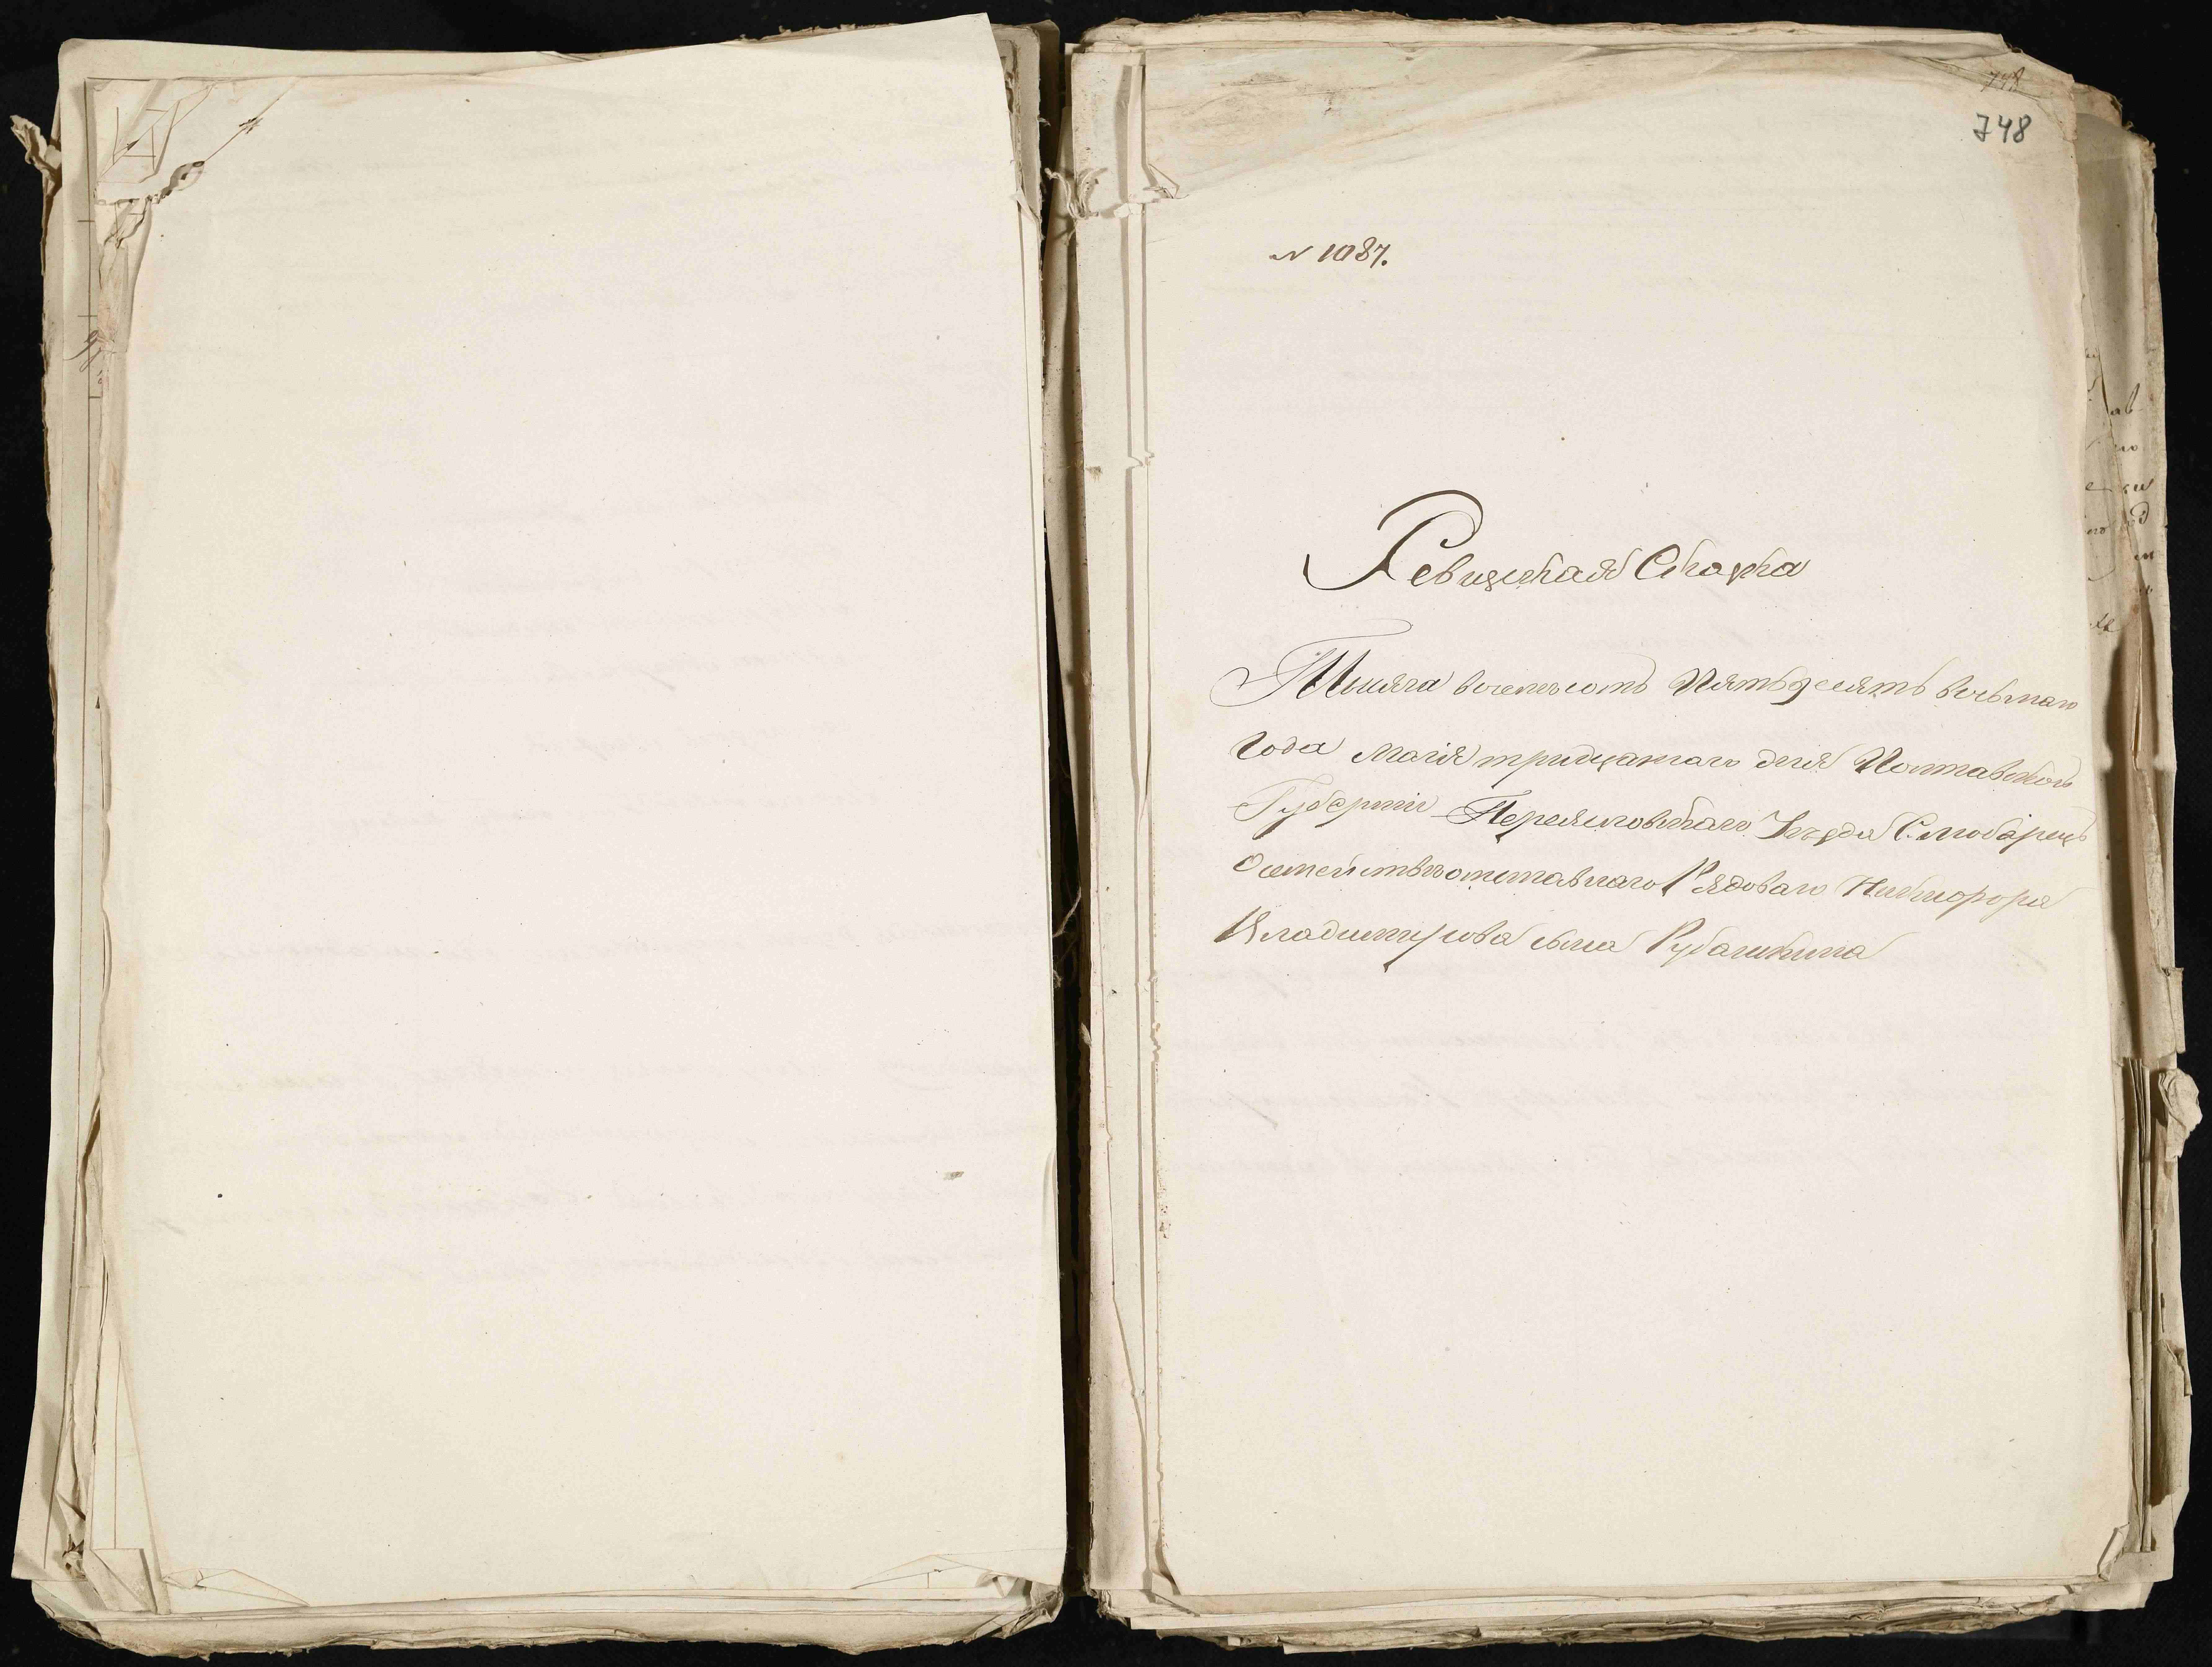 748
748
№ 1087.
Ревизская Сказка
Тысяча восемьсотъ Пятьдесятъ восьмаго
Года Маія тридцатаго дня Полтавской
Губерніи Переяславскаго Уѣзда
О семействѣ отставнаго Рядоваго Никифора
Владимирова сына Рубашкина